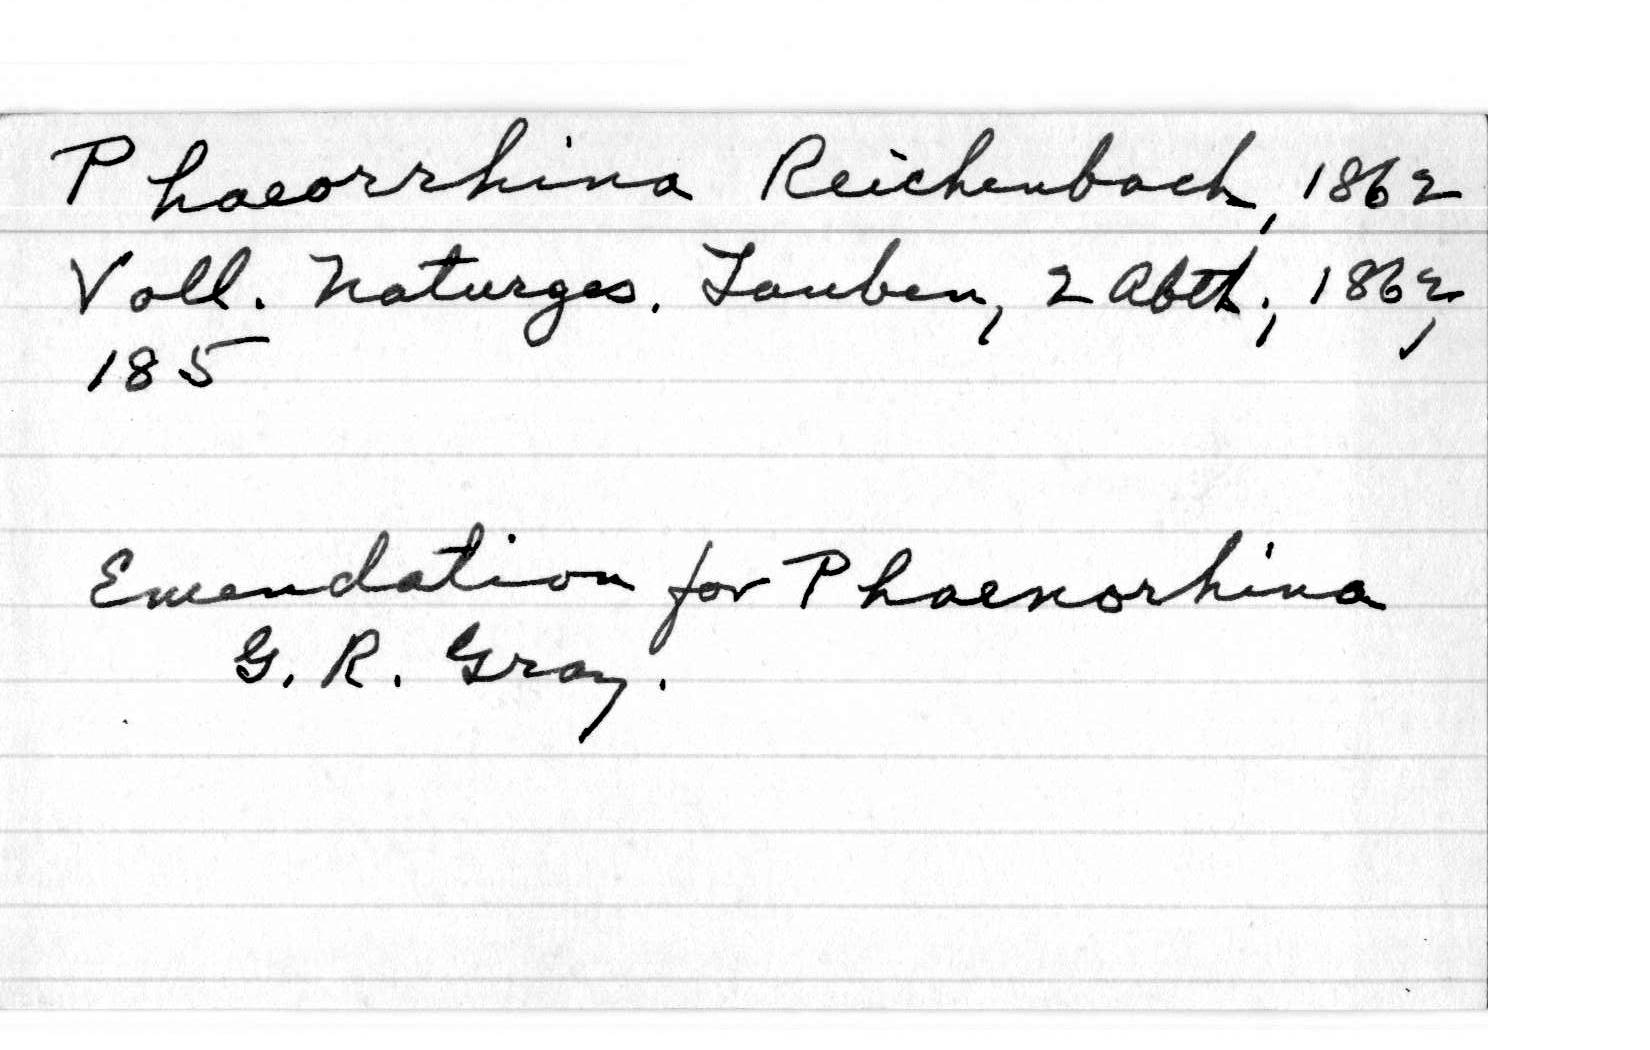 Phaeorrhina Reichenbach, 1862
Voll. Naturges. Tauben, 2 Abth., 1862,
185
Emendation for Phaenorhina
G. R. Gray.